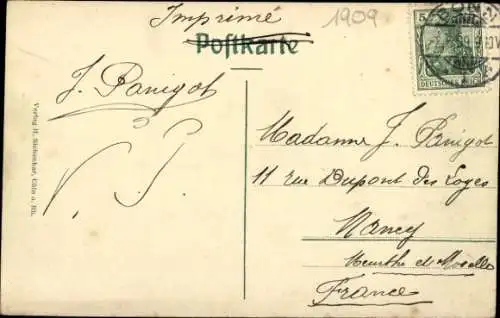 Imprimé
1909
Postkarte
5
DEUTSCHES REICH
J. Panigot
Madame J. Panigot
11 rue Dupont des Loges
Nancy
Meurthe et Moselle
France
Verlag H. Siebenhar, Cöln a. Rh.